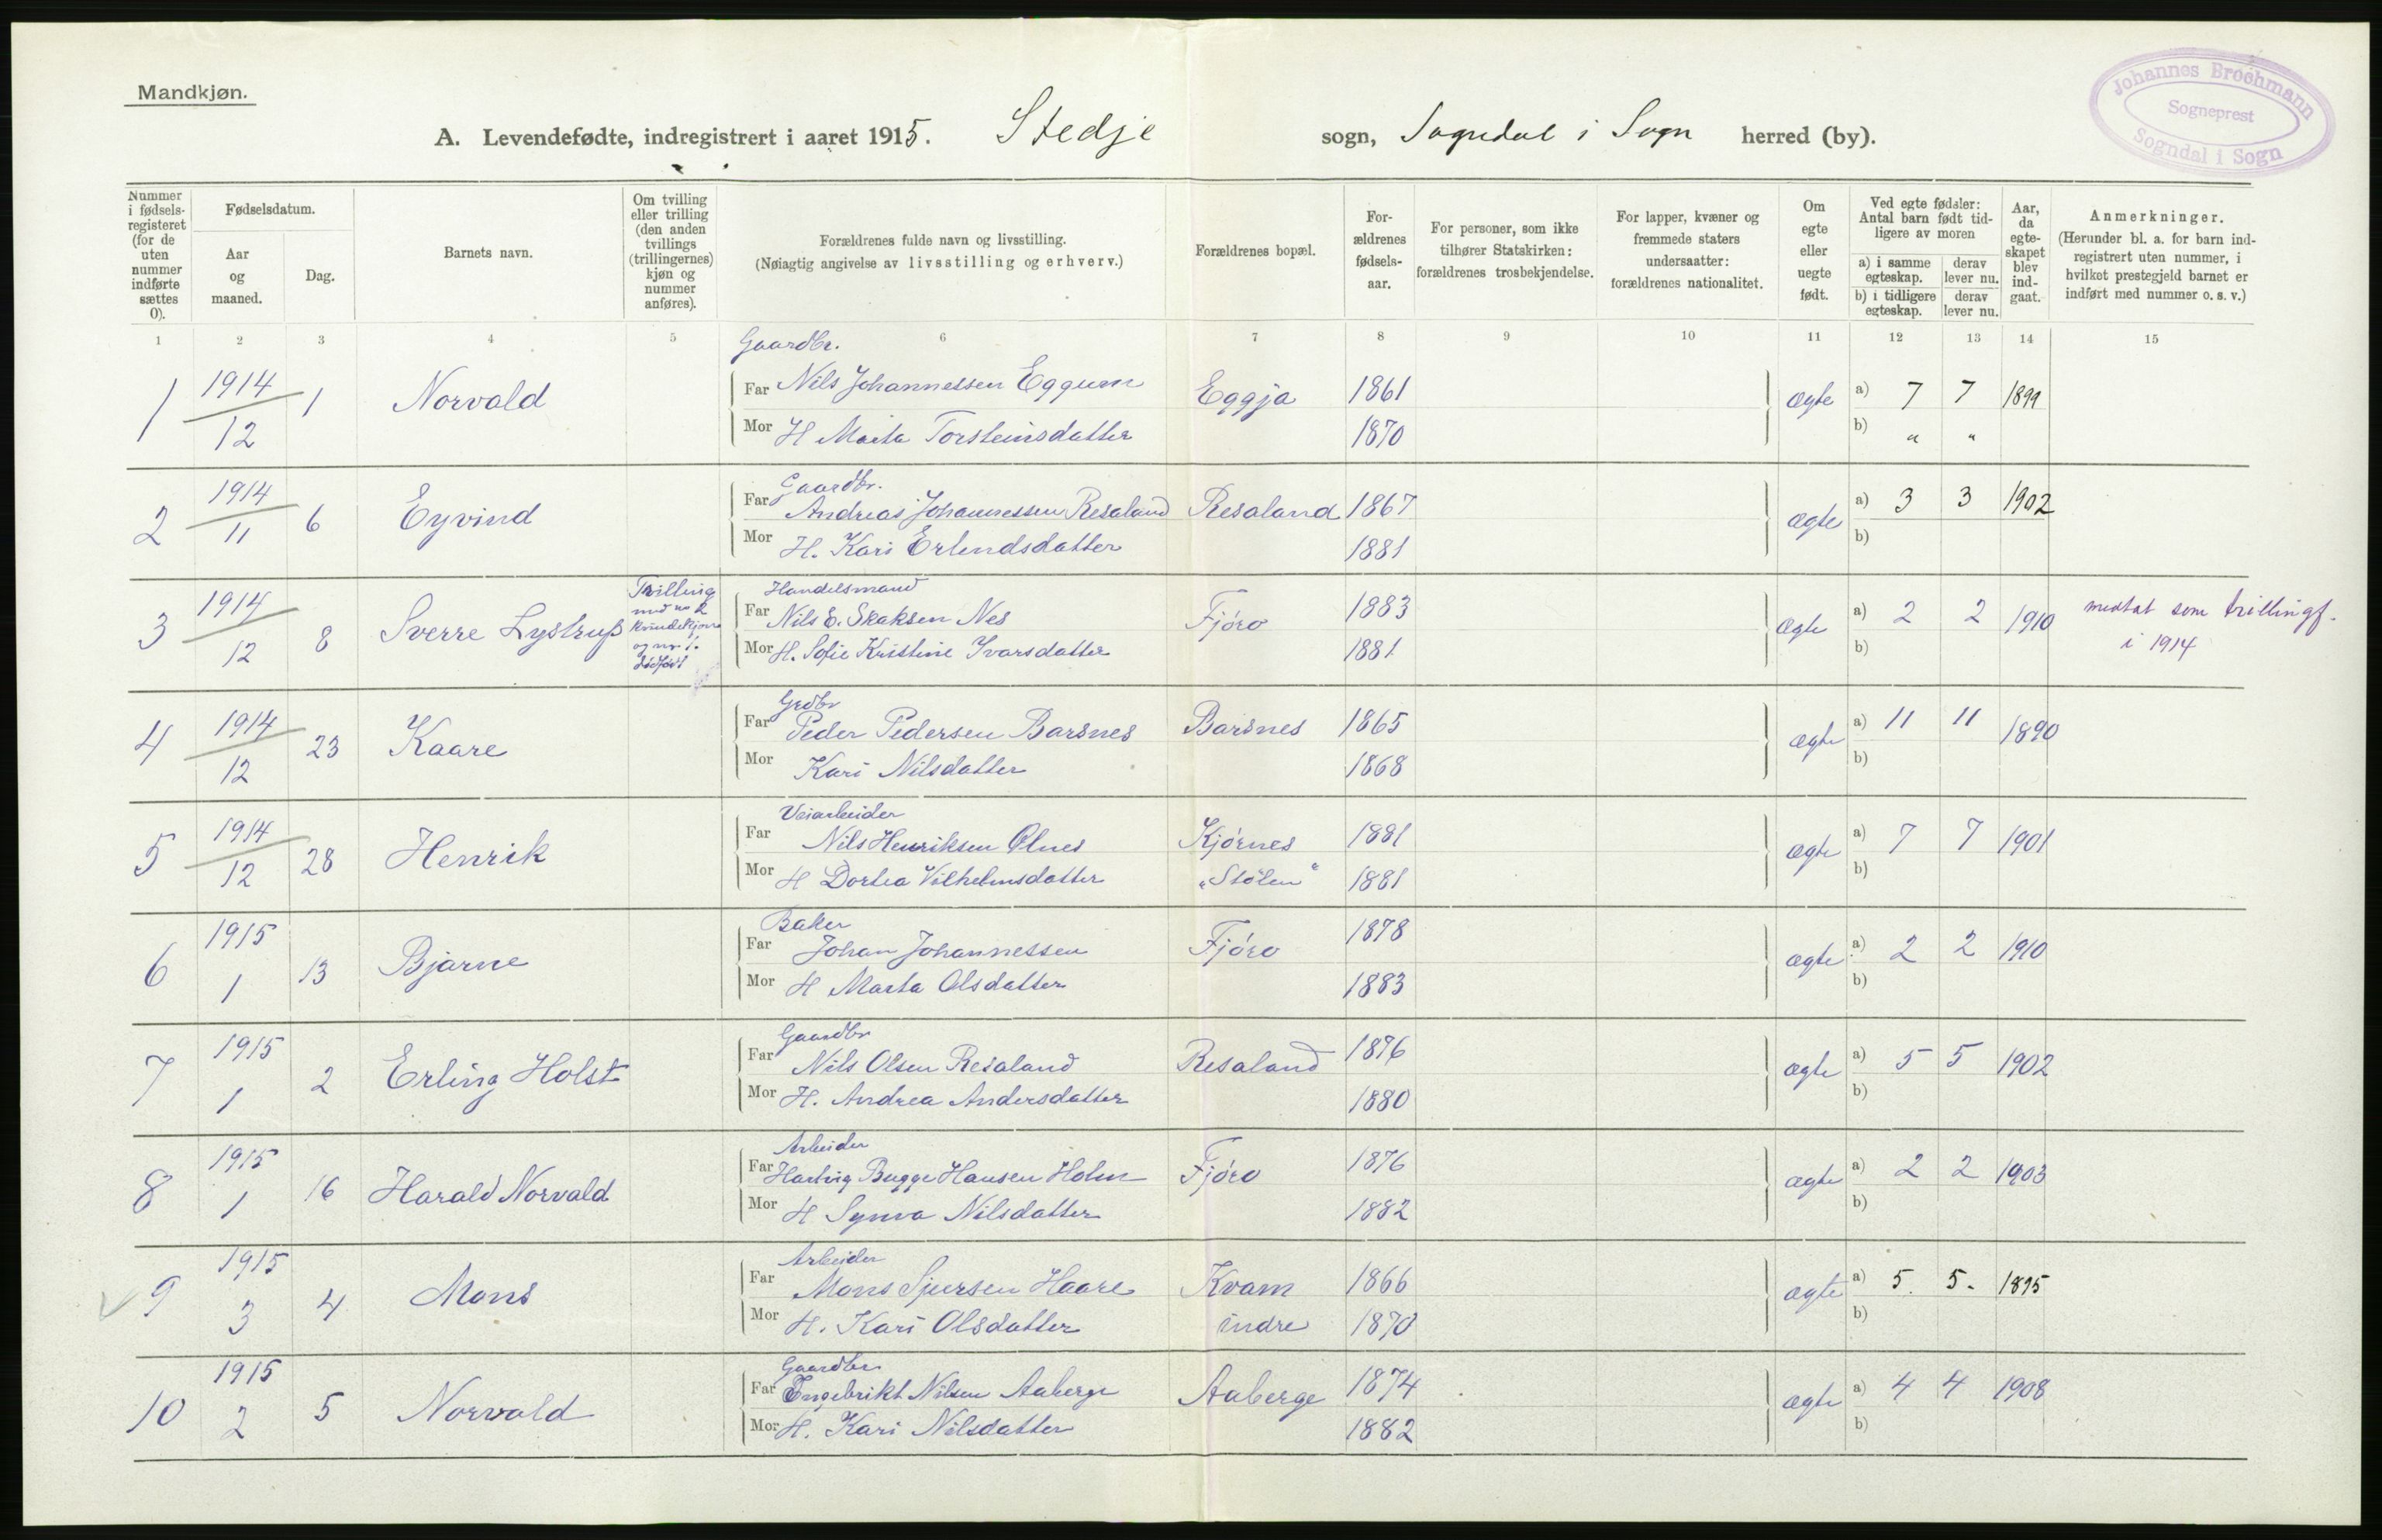 Mandkjøn.
A. Levendefødte, indregistrert i aaret 1915. Stedje sogn, Sogndal i Sogn herred (by).
Johannes Brochmann
Sogneprest
Sogndal i Sogn
Nummer i fødselsregisteret (for de uten nummer indførte sættes 0).
Fødselsdatum.
Aar og maaned.
Dag.
Barnets navn.
Om tvilling eller trilling (den anden tvillings (trillingernes) kjøn og nummer anføres).
Forældrenes fulde navn og livsstilling.
(Nøiagtig angivelse av livsstilling og erhverv.)
Forældrenes bopæl.
Forældrenes fødselsaar.
For personer, som ikke tilhører Statskirken: forældrenes trosbekjendelse.
For lapper, kvæner og fremmede staters undersaatter: forældrenes nationalitet.
Om egte eller uegte født.
Ved egte fødsler: Antal barn født tidligere av moren
a) i samme egteskap.
derav lever nu.
b) i tidligere egteskap.
derav lever nu.
Aar, da egteskapet blev indgaat.
Anmerkninger.
(Herunder bl. a. for barn indregistrert uten nummer, i hvilket prestegjeld barnet er indført med nummer o. s. v.)
1 2 3 4 5 6 7 8 9 10 11 12 13 14 15
Gaardbr.
1 1914 12 1 Norvald Far Nils Johannessen Eggum Eggja 1861 ægte a) 7 7 1899
Mor H Marta Torsteinsdatter 1870 b) " "
Gaardbr.
2 1914 11 6 Eyvind Far Andreas Johannessen Resaland Resaland 1867 ægte a) 3 3 1902
Mor H. Kari Erlendsdatter 1881 b)
Trilling med no 2 kvindekjøn og nr 1. dødfødt
Handelsmand
3 1914 12 8 Sverre Lystrup Far Nils E. Skaksen Nes Fjøro 1883 ægte a) 2 2 1910 medtat som trillingf. i 1914
Mor H. Sofie Kristine Ivarsdatter 1881 b)
Grdbr
4 1914 12 23 Kaare Far Peder Pedersen Barsnes Barsnes 1865 ægte a) 11 11 1890
Mor Kari Nilsdatter 1868 b)
Veiarbeider
5 1914 12 28 Henrik Far Nils Henriksen Ølnes Kjørnes 1881 ægte a) 7 7 1901
Mor H Dortea Vilhelmsdatter "Stølen" 1881 b)
Baker
6 1915 1 13 Bjarne Far Johan Johannessen Fjøro 1878 ægte a) 2 2 1910
Mor H Marta Olsdatter 1883 b)
Gaardbr
7 1915 1 2 Erling Holst Far Nils Olsen Resaland Resaland 1876 ægte a) 5 5 1902
Mor H. Andrea Andersdatter 1880 b)
Arbeider
8 1915 1 16 Harald Norvald Far Hartvig Bugge Hansen Holm Fjøro 1876 ægte a) 2 2 1903
Mor H Synva Nilsdatter 1882 b)
Arbeider
9 1915 3 4 Mons Far Mons Sjursen Haare Kvam 1866 ægte a) 5. 5. 1895
Mor H. Kari Olsdatter indre 1870 b)
Gaardbr
10 1915 2 5 Norvald Far Engebrikt Nilsen Aaberge Aaberge 1874 ægte a) 4 4 1908
Mor H. Kari Nilsdatter 1882 b)